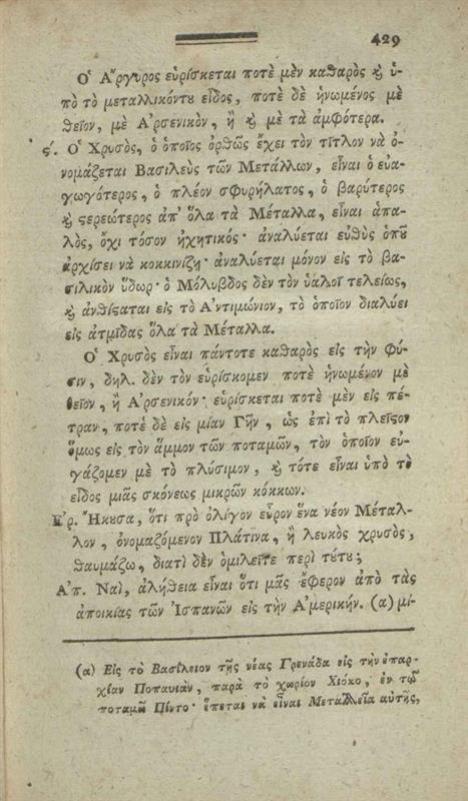 429
Ὁ Ἄργυρος εὑρίσκεται ποτὲ μὲν καθαρὸς ϗ ὑ-
πὸ τὸ μεταλλικόντυ εἶδος, ποτὲ δὲ ἡνωμένος μὲ
θεῖον, μὲ Ἀρσενικὸν, ἢ ϗ μὲ τὰ ἀμφότερα.
ϛ. Ὁ Χρυσὸς, ὁ ὁποῖος ὀρθῶς ἔχει τὸν τῖτλον νὰ ὀ-
νομάζεται Βασιλεὺς τῶν Μετάλλων, εἶναι ὁ εὐα-
γωγότερος, ὁ πλέον σφυρήλατος, ὁ βαρύτερος
ϗ ϛερεώτερος ἀπ' ὅλα τὰ Μέταλλα, εἶναι ἁπα-
λὸς, ὄχι τόσον ἠχητικός· ἀναλύεται εὐθὺς ὁπȣ͂
ἀρχίσει νὰ κοκκινίζῃ· ἀναλύεται μόνον εἰς τὸ βα-
σιλικὸν ὕδωρ· ὁ Μόλυβδος δὲν τὸν ὑαλοῖ τελείως,
ϗ ἀνθίϛαται εἰς τὸ Ἀντιμώνιον, τὸ ὁποῖον διαλύει
εἰς ἀτμίδας ὅλα τὰ Μέταλλα.
Ὁ Χρυσὸς εἶναι πάντοτε καθαρὸς εἰς τὴν Φύ-
σιν, δηλ. δὲν τὸν εὑρίσκομεν ποτὲ ἡνωμένον μὲ
θεῖον, ἢ Ἀρσενικόν· εὑρίσκεται ποτὲ μὲν εἰς πέ-
τραν, ποτὲ δὲ εἰς μίαν Γῆν, ὡς ἐπὶ τὸ πλεῖϛον
ὅμως εἰς τὸν ἄμμον τῶν ποταμῶν, τὸν ὁποῖον εὐ-
γάζομεν μὲ τὸ πλύσιμον, ϗ τότε εἶναι ὑπὸ τὸ
εἶδος μιᾶς σκόνεως μικρῶν κόκκων.
Ἐρ. Ἤκȣσα, ὅτι πρὸ ὀλίγον εὗρον ἕνα νέον Μέταλ-
λον, ὀνομαζόμενον Πλάτινα, ἢ λευκὸς χρυσὸς,
θαυμάζω, διατὶ δὲν ὁμιλεῖτε περὶ τȣ́τȣ;
Ἀπ. Ναὶ, ἀλήθεια εἶναι ὅτι μᾶς ἔφερον ἀπὸ τὰς
ἀποικίας τῶν Ἱσπανῶν εἰς τὴν Ἀμερικήν. (α) μί-
(α) Εἰς τὸ Βασίλειον τῆς νέας Γρενάδα εἰς τὴν ἐπαρ-
χίαν Ποπαυιὰν, παρὰ τὸ χωρίον Χιόκο, ἐν τῷ
ποταμῷ Πίντο· ἕπεται νὰ εἶναι Μεταλλεῖα αὐτῆς,